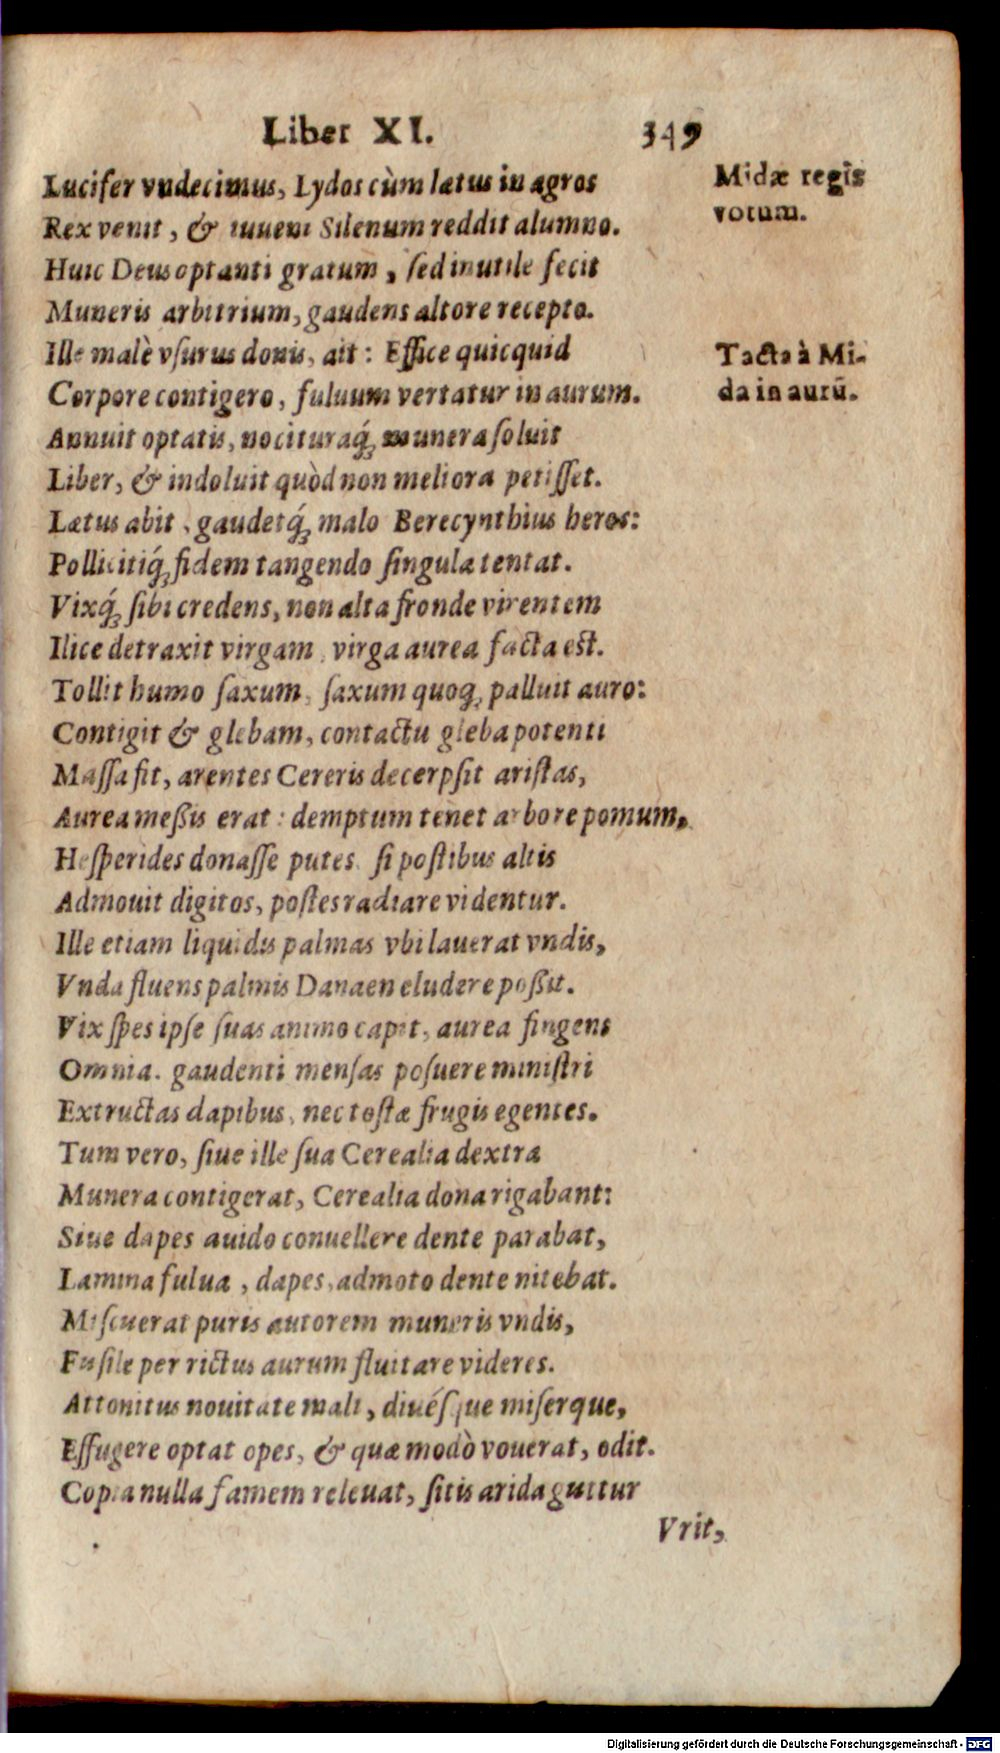 Liber XI. 349
Lucifer vndecimus, Lydos cùm lætus in agros
Midæ regis
Rex venit, & iuueni Silenum reddit alumno.
votum.
Huic Deus optanti gratum, sed inutile fecit
Muneris arbitrium, gaudens altore recepto.
Ille malè vsurus donis, ait: Effice quicquid
Tacta à Mi-
Corpore contigero, fuluum vertatur in aurum.
da in aurū.
Annuit optatis, nocituraq́; munera soluit
Liber, & indoluit quòd non meliora petisset.
Lætus abit, gaudetq́; malo Berecynthius heros:
Pollicitiq́; fidem tangendo singula tentat.
Vixq́; sibi credens, non alta fronde virentem
Ilice detraxit virgam, virga aurea facta est.
Tollit humo saxum, saxum quoq; palluit auro:
Contigit & glebam, contactu gleba potenti
Massa fit, arentes Cereris decerpsit aristas,
Aurea meßis erat: demptum tenet arbore pomum,
Hesperides donasse putes. si postibus altis
Admouit digitos, postes radiare videntur.
Ille etiam liquidis palmas vbi lauerat vndis,
Vnda fluens palmis Danaen eludere poßit.
Vix spes ipse suas animo capit, aurea fingens
Omnia. gaudenti mensas posuere ministri
Extructas dapibus, nec tostæ frugis egentes.
Tum vero, siue ille sua Cerealia dextra
Munera contigerat, Cerealia dona rigabant:
Siue dapes auido conuellere dente parabat,
Lamina fulua, dapes, admoto dente nitebat.
Miscuerat puris autorem muneris vndis,
Fusile per rictus aurum fluitare videres.
Attonitus nouitate mali, diuésque miserque,
Effugere optat opes, & quæ modò vouerat, odit.
Copia nulla famem releuat, sitis arida guttur
Vrit,
Digitalisierung gefördert durch die Deutsche Forschungsgemeinschaft - DFG